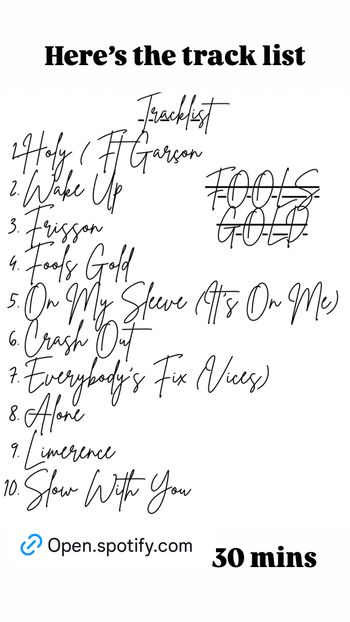 Here's the track list
Tracklist
1. Holy ( Ft Garson
2. Wake Up
FOOLS
GOLD
3. Frisson
4. Fools Gold
5. On My Sleeve (It's On Me)
6. Crash Out
7. Everybody's Fix (Vices)
8. Alone
9. Limerence
10. Slow With You
Open.spotify.com
30 mins